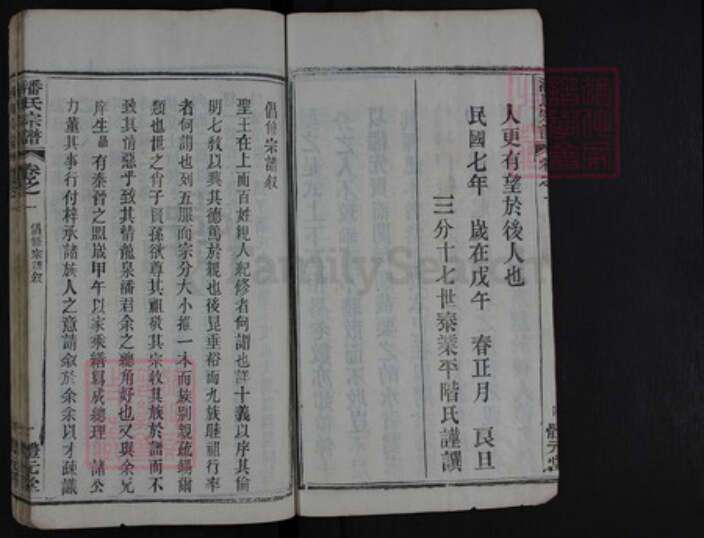 人更有望於後人也
民國七年 歲在戊午 春正月 良旦
三分十七世泰業平階氏謹譔
體元堂
倡修宗譜敘
聖王在上而百姓親人紀修者何謂也詳十義以序其倫
明七敎以興其德篤於親也後昆垂裕而九族睦祖行率
者何謂也列五服而宗分大小推一本而族別親疏錫爾
類也世之胄子賢孫欲尊其祖敬其宗敎其族於譜而不
致其情惡乎致其情龍泉潘君余之總角好也又與余兄
庠生晶 有泰晉之盟歲甲午以家乘繕寫成總理 諸公
力董其事行付梓承諸族人之意請敘於余余以才疎識
潘氏宗譜 卷之一 倡修宗譜敘 一 體元堂
FamilySearch